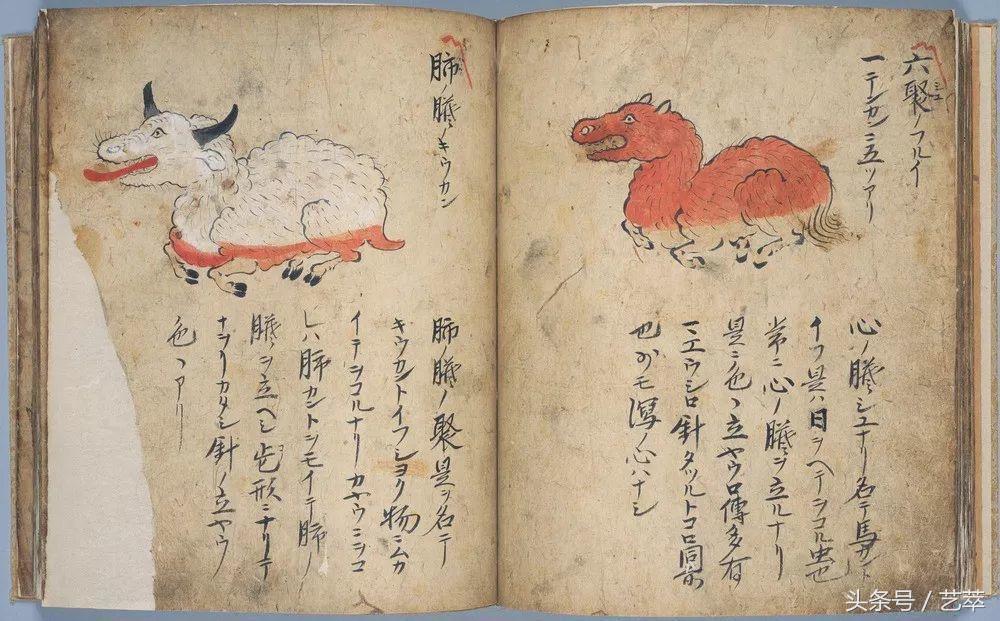 六聚ノフルイ
一テンカンニ五ツアリ
心ノ臓シユナリ名テ馬カント
イフ是ハ日ヲヘテヲコル虫也
常ニ心ノ臓ヲ立ルナリ
是ニ色〻立ヤウ口傳多有
マエウシロ針タツルトコロ同前
也少モ瀉ノ心ハナシ
肺ノ臓ノキウカン
肺ノ臓ノ聚是ヲ名テ
キウカントイフシヨク物ニムカ
イテヲコルナリカヤウニヲコ
レハ肺カントヲモイテ肺ノ
臓ヲ立ヘシ此形ニナリテ
ナヲリカタシ針ノ立ヤウ
色〻アリ
头条号 / 艺萃